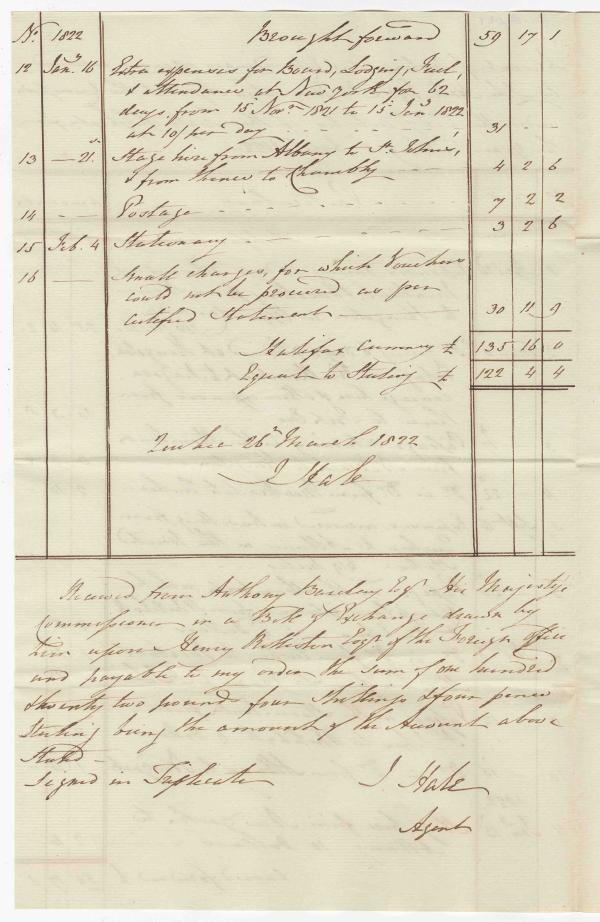 No. 1822 Brought forward 59 17 1
12 Jany. 16 Extra expenses for Board, Lodging, Fuel,
& attendance at New York for 62
days, from 15 Novr. 1821 to 15 Jany 1822
at 10/ per day 31 - -
13 — 21 Stage hire from Albany to St. Johns,
& from thence to Chambly 4 2 6
14 - - Postage 7 2 2
15 Feb. 4 Stationary 3 2 6
16 — Small charges, for which Vouchers
could not be procured as per
certified Statement 30 11 9
Halifax currency £ 135 16 0
Equal to Sterling £ 122 4 4
Quebec 26th March 1822
J Hale
Received from Anthony Barclay Esqr. His Majesty's
Commissioner in a Bill of Exchange drawn by
him upon Henry Esqr. of the Foreign Office
and payable to my order the sum of one hundred
& twenty two pounds four shillings & four pence
Sterling being the amount of the Account above
Stated —
Signed in Triplicate J. Hale
Agent